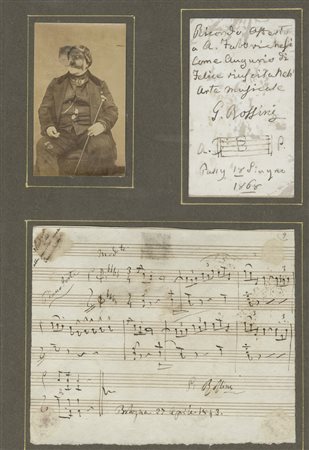 Ricordo offerto
a A.
Come Augurio di
felice riuscita nell'
Arte musicale
G. Rossini
A. B P.
Passy 18 Giugno
1868
Mod.to
Pianoforte
G. Rossini
Bologna 27 Aprile